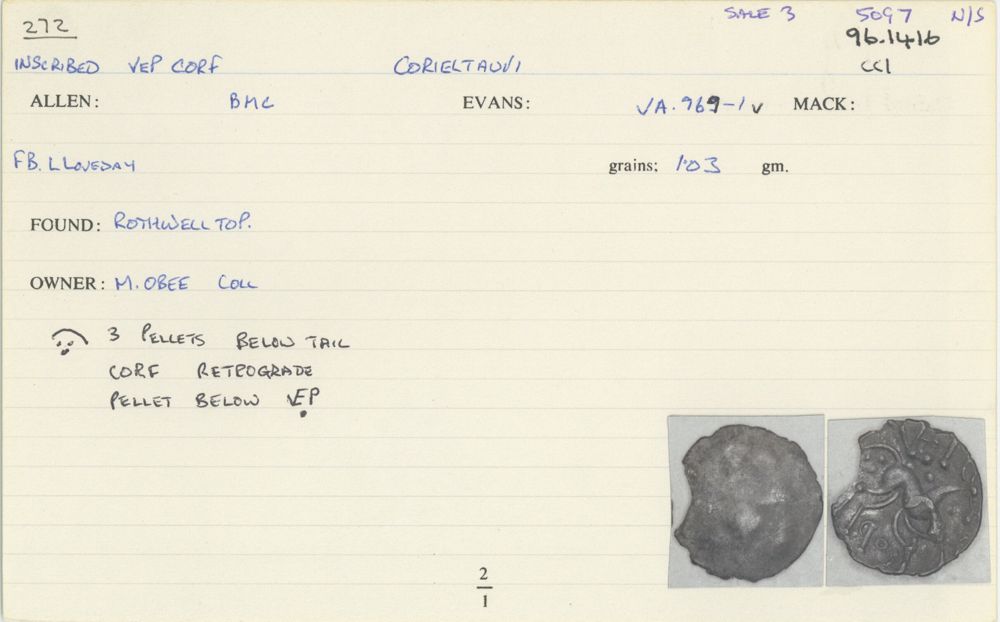 272 SALE 3 5097 N/S
96.1416
INSCRIBED VEP CORF CORIELTAUVI CCI
ALLEN: BMC EVANS: VA.969-1 v MACK:
FB. L LOVEDAY grains: 1.03 gm.
FOUND: ROTHWELL TOP.
OWNER: M. OBEE COLL
3 PELLETS BELOW TAIL
CORF RETROGRADE
PELLET BELOW VEP
2
1